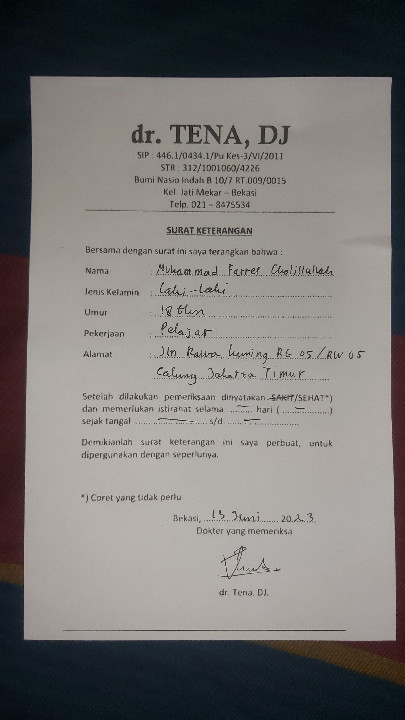 dr. TENA, DJ
SIP : 446.1/0434.1/Pu Kes-3/VI/2011
STR : 312/1001060/4226
Bumi Nasio Indah B 10/7 RT.009/0015
Kel. Jati Mekar – Bekasi
Telp. 021 – 8475534
SURAT KETERANGAN
Bersama dengan surat ini saya terangkan bahwa :
Nama : Muhammad Farrel Cholillullah
Jenis Kelamin : Laki-laki
Umur : 18 thn
Pekerjaan : Pelajar
Alamat : Jln Rawa Kuning RT 05 / RW 05
Cakung Jakarta Timur
Setelah dilakukan pemeriksaan dinyatakan SAKIT/SEHAT*)
dan memerlukan istirahat selama ..... hari ( ..... )
sejak tangal ..... s/d .....
Demikianlah surat keterangan ini saya perbuat, untuk
dipergunakan dengan seperlunya.
*) Coret yang tidak perlu
Bekasi, 13 Juni 2023
Dokter yang memeriksa
dr. Tena, DJ.